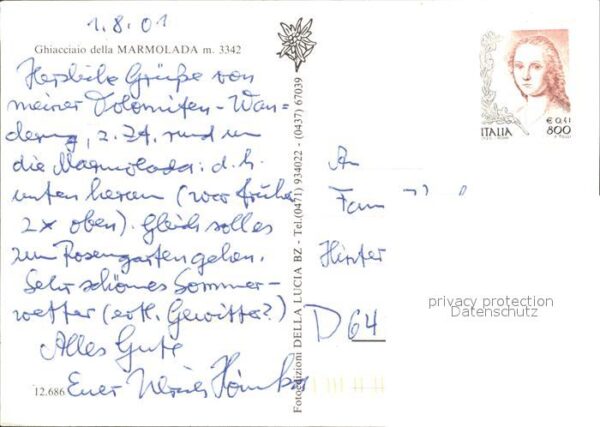 1.8.01
Ghiacciaio della MARMOLADA m. 3342
Herzliche Grüße von
meiner Dolomiten-Wan-
derung, z. Zt. rund um
die Marmolada: d. h.
unten herum (war früher
2x oben). Gleich solles
zum Rosengarten gehen.
Sehr schönes Sommer-
wetter (evtl. Gewitter?)
Alles Gute
Euer
12.686
Fotoedizioni DELLA LUCIA BZ - Tel.(0471) 934022 - (0437) 67039
ITALIA
€ 0,41
800
An
Fam
Hinter
D 64
privacy protection
Datenschutz